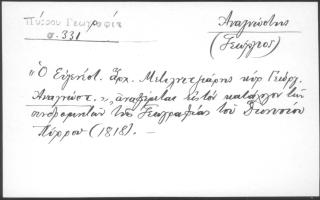 Πύρρου Γεωγραφία
σ. 331
Ἀναγνώστης
(Γεώργιος)
"Ὁ Εὐγενέστ. ἄρχ. Μεϊλχιτζμπάρης κὺρ Γεώργ.
Ἀναγνώστ.", ἀναφέρεται εἰς τὸν κατάλογον τῶν
συνδρομητῶν τῆς Γεωγραφίας τοῦ Διονυσίου
Πύρρου (1818). —